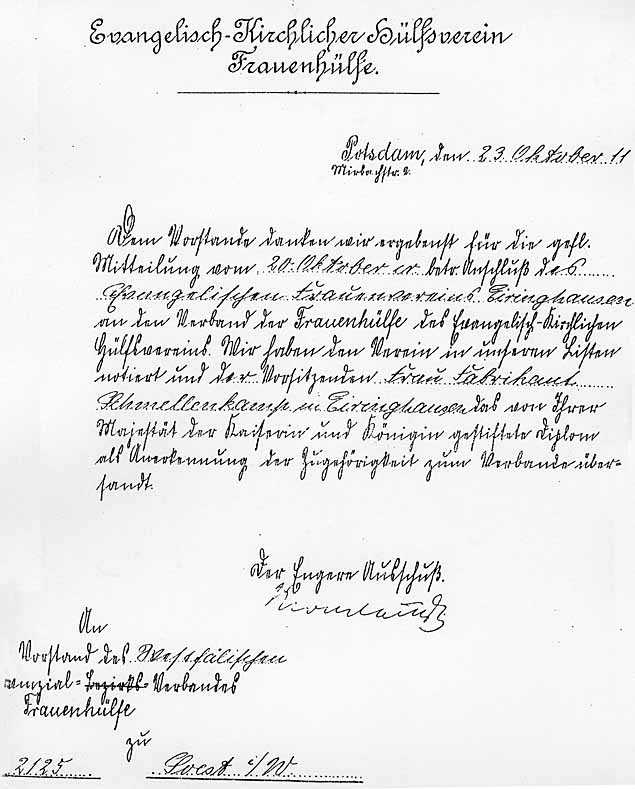 Evangelisch-Kirchlicher Hülfsverein
Frauenhülfe.
Potsdam, den 23. Oktober 11
Mirbachstr. 2.
Dem Vorstande danken wir ergebenst für die gefl.
Mitteilung vom 20. Oktober cr. betr. Anschluß des
Evangelischen Frauenvereins Eiringhausen
an den Verband der Frauenhülfe des Evangelisch-Kirchlichen
Hülfsvereins. Wir haben den Verein in unseren Listen
notiert und der Vorsitzenden Frau Fabrikant
in Eiringhausen das von Ihrer
Majestät der Kaiserin und Königin gestiftete Diplom
als Anerkennung der Zugehörigkeit zum Verbande über-
sandt.
Der Engere Ausschuß.
An
Vorstand des Westfälischen
vinzial- Bezirks- Verbandes
Frauenhülfe
zu
2125 Soest i/W.